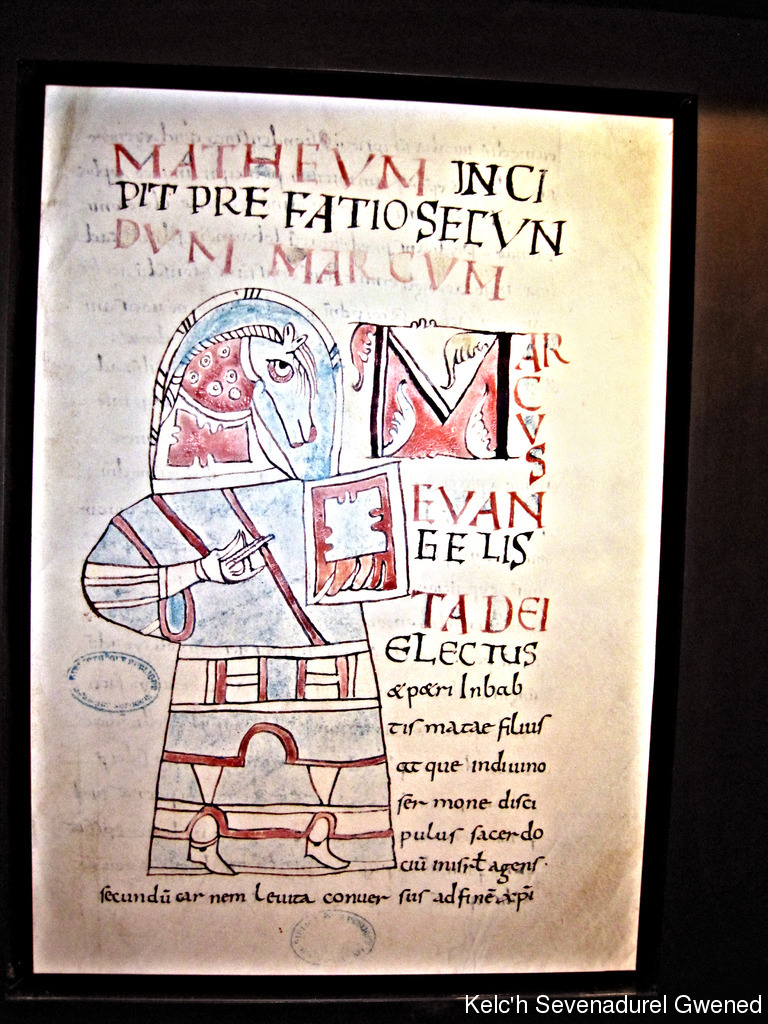 MATHEVM INCI
PIT PREFATIO SECVN
DVM MARCVM
MAR
C
V
S
EVAN
GELIS
TA DEI
ELECTUS
& p&ri Inbab
tis matae filius
at que indiuino
ser mone disci
pulus sacerdo
ciū agens
secundū car nem leuita conuer sus ad finē
Kelc'h Sevenadurel Gwened